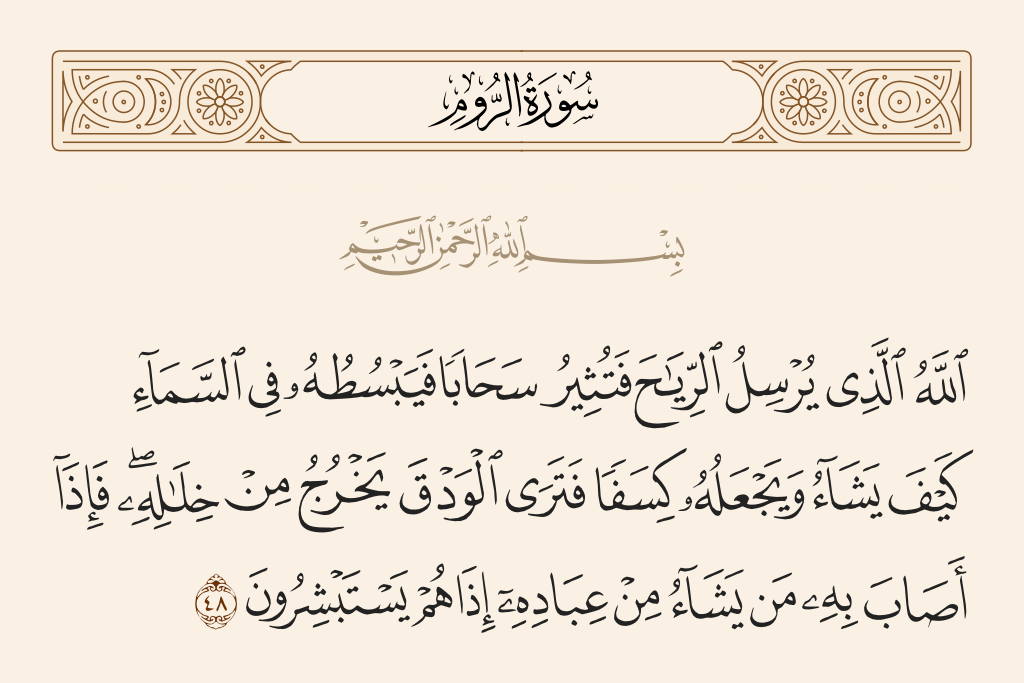 سُورَةُ الرُّومِ
بِسْمِ ٱللَّهِ ٱلرَّحْمَٰنِ ٱلرَّحِيمِ
ٱللَّهُ ٱلَّذِى يُرْسِلُ ٱلرِّيَـٰحَ فَتُثِيرُ سَحَابًا فَيَبْسُطُهُۥ فِى ٱلسَّمَآءِ
كَيْفَ يَشَآءُ وَيَجْعَلُهُۥ كِسَفًا فَتَرَى ٱلْوَدْقَ يَخْرُجُ مِنْ خِلَـٰلِهِۦ ۖ فَإِذَآ
أَصَابَ بِهِۦ مَن يَشَآءُ مِنْ عِبَادِهِۦٓ إِذَا هُمْ يَسْتَبْشِرُونَ ٤٨